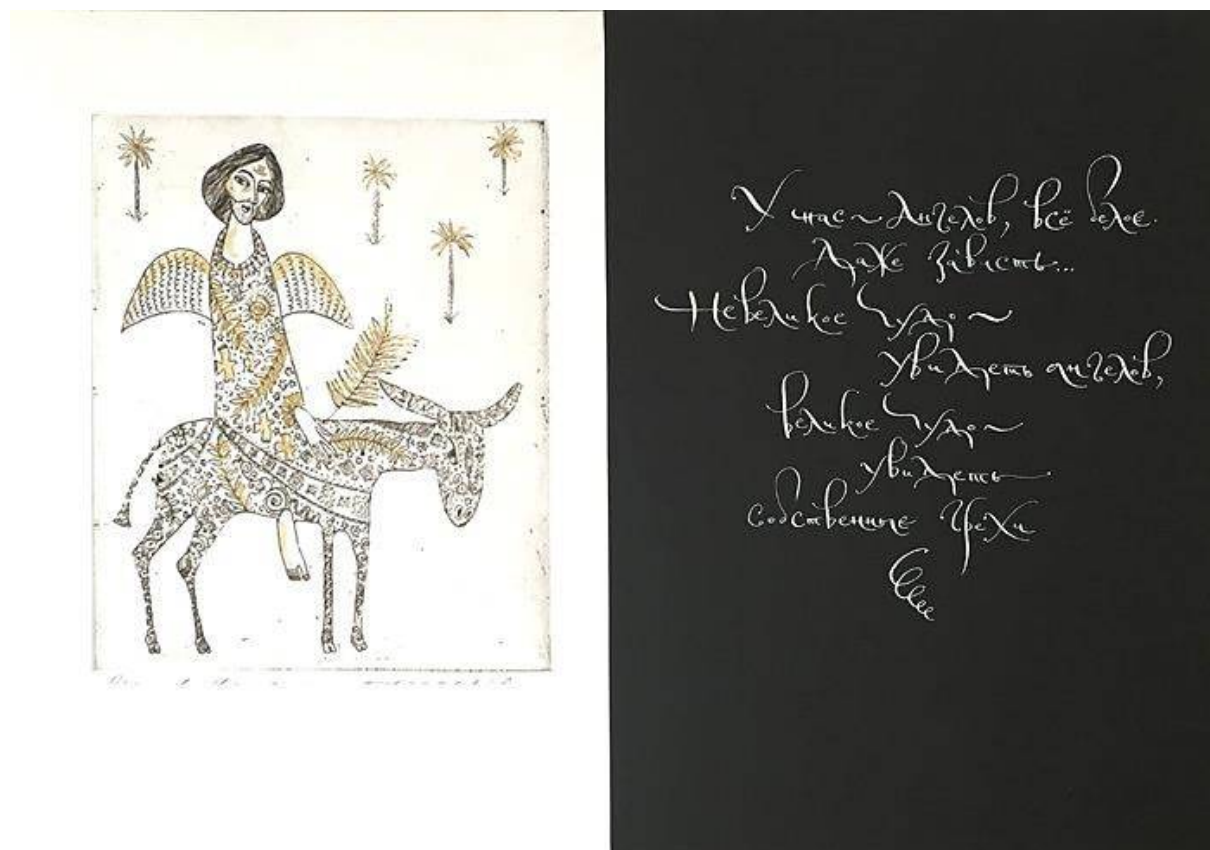 У нас ~ Ангелов, всё белое.
Даже зависть...
Невеликое чудо ~
увидеть ангелов,
великое чудо ~
увидеть
собственные грехи